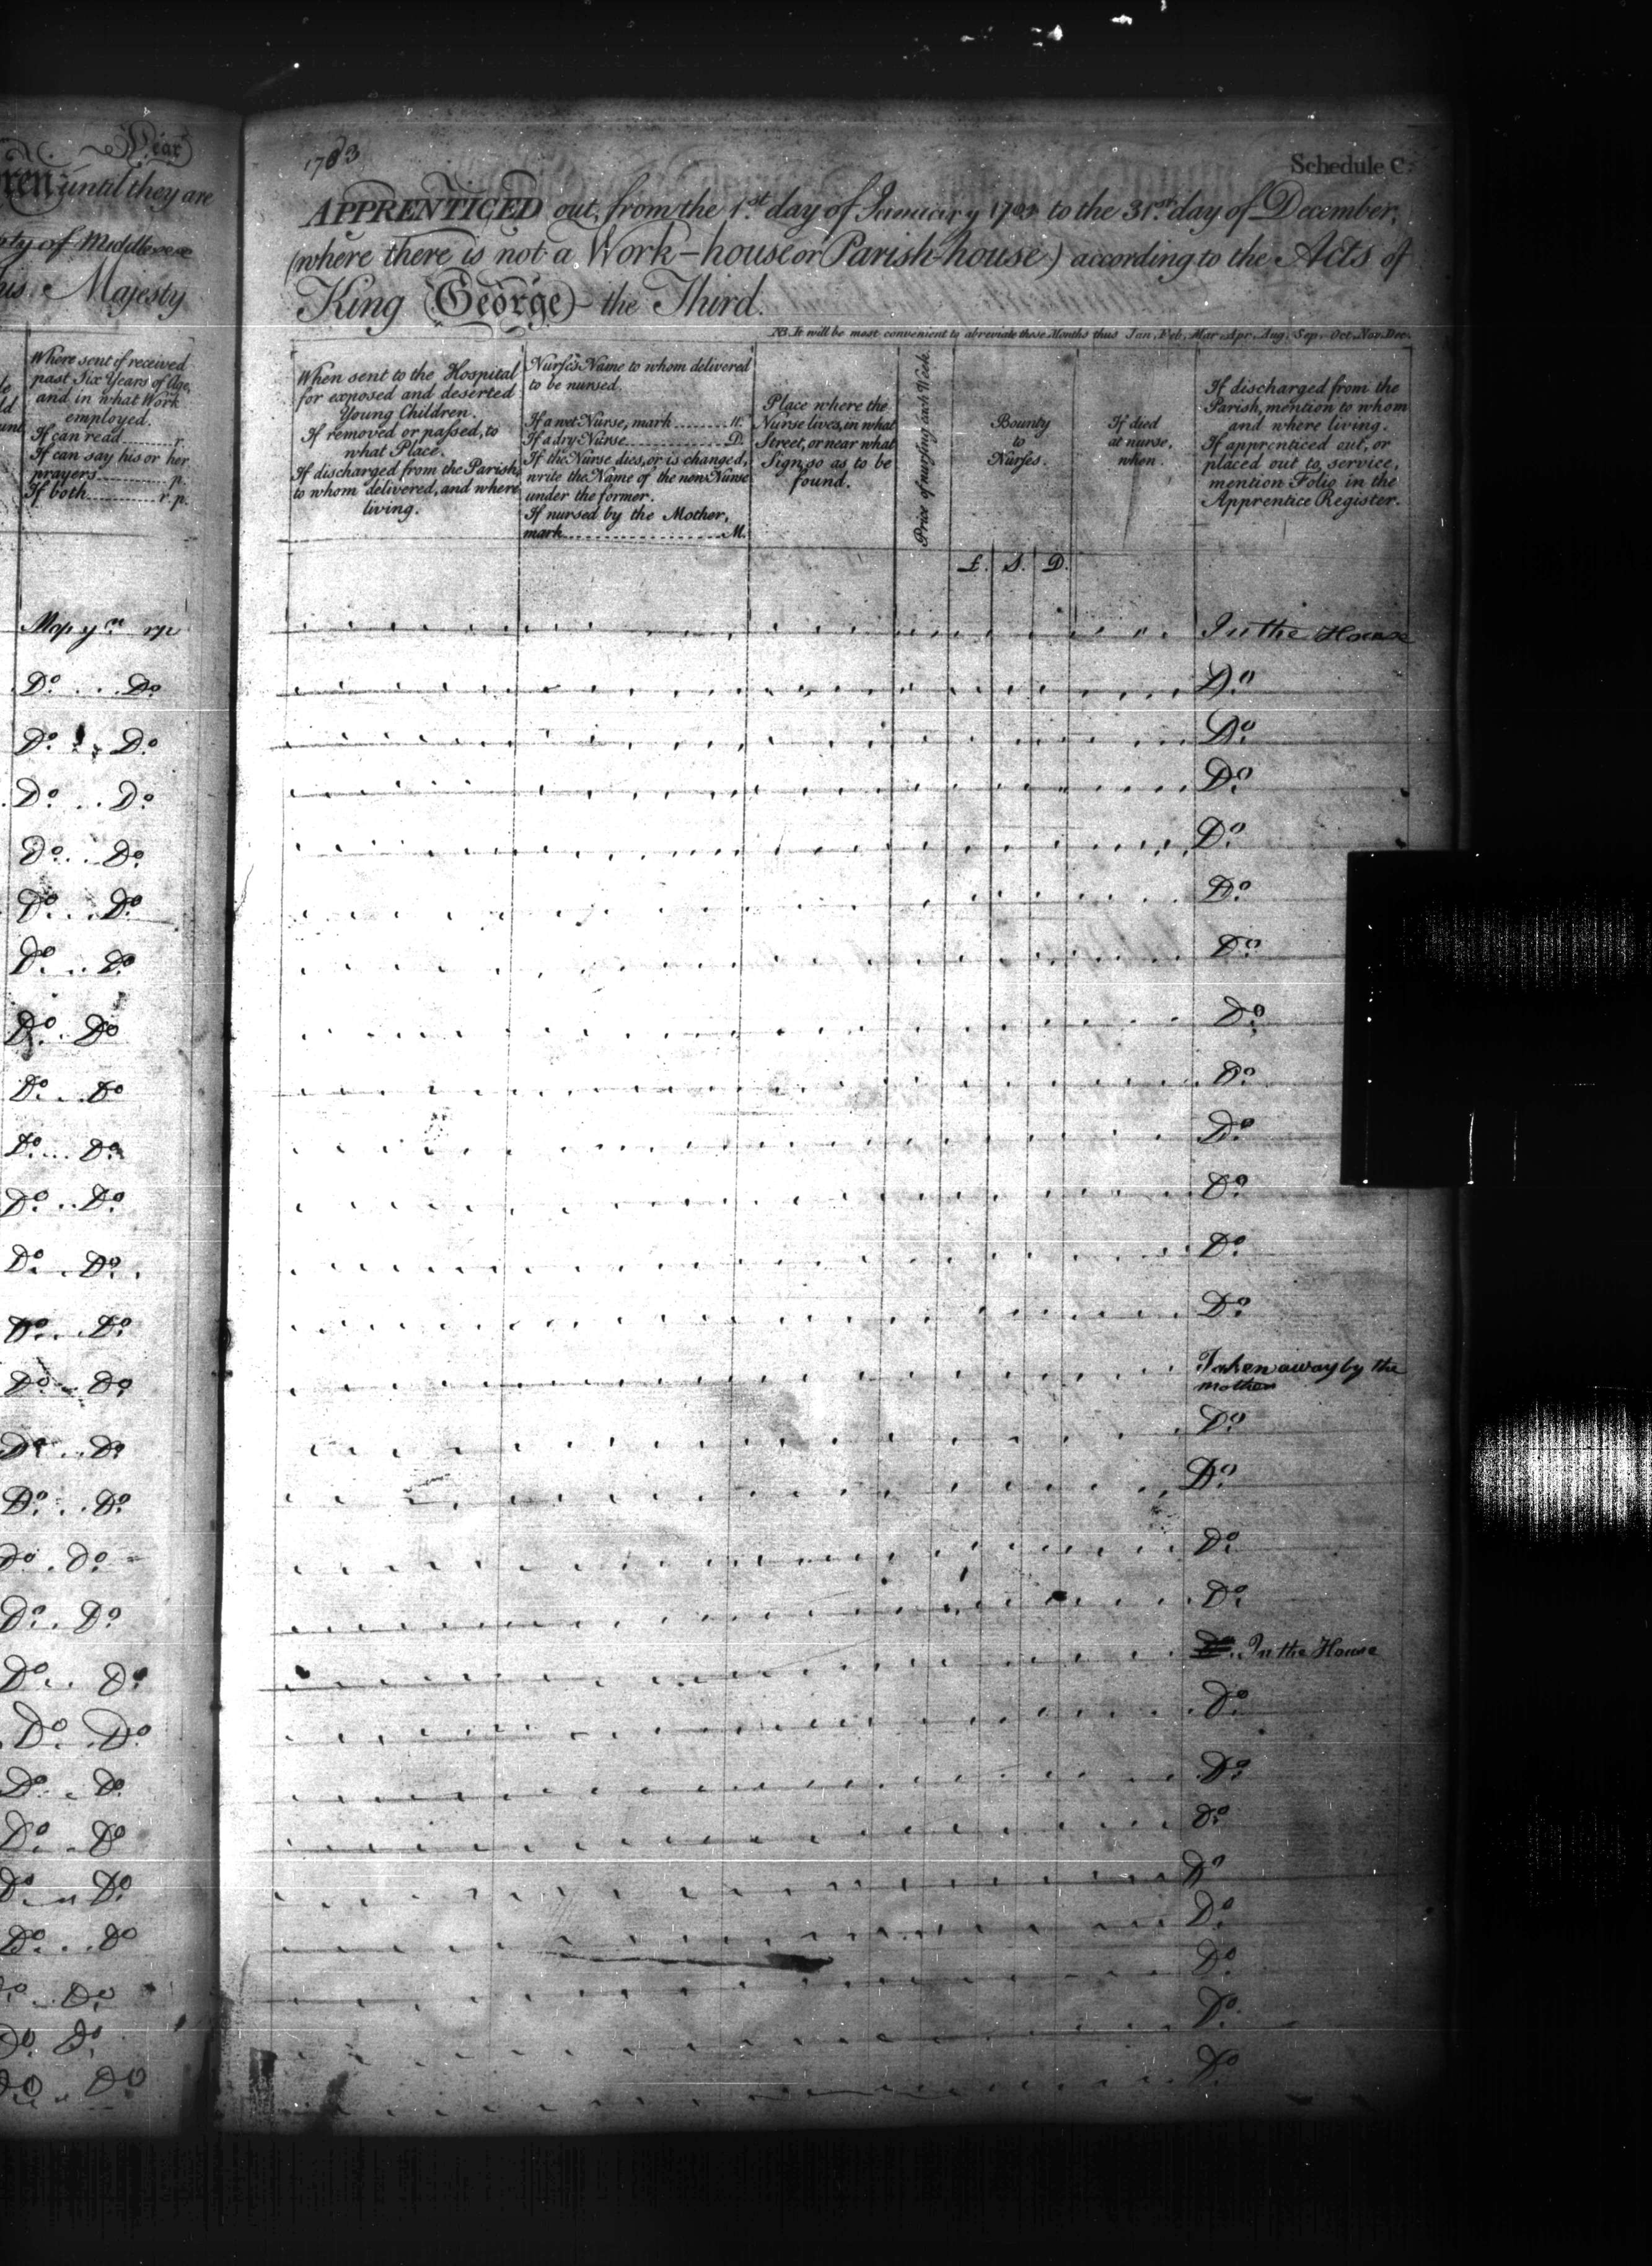 Year
ren until they are
nty of Middlesex
his Majesty
Where sent if received
past Six Years of Age,
and in what Work
employed.
If can read ........ r.
If can say his or her
prayers ........ p.
If both ........ r.p.
rp
Do. . . . Do.
Do. . . Do.
Do. . . Do.
Do. . . Do.
Do. . . Do.
Do. . . Do.
Do. . . Do.
Do. . . Do.
Do. . . . Do.
Do. . . Do.
Do. . . Do.
Do. . . Do.
Do. . . Do.
Do. . . Do.
Do. . . Do.
Do. . Do.
Do. . Do.
Do. . . Do.
Do. . . Do.
Do. . . Do.
Do. . . Do.
Do. . . Do.
Do. . . Do.
Do. . . Do.
Do. Do.
Do. . . Do.
1783
Schedule C.
APPRENTICED out, from the 1st. day of January 1783 to the 31st. day of December,
(where there is not a Work-house or Parish-house) according to the Acts of
King George the Third.
NB. It will be most convenient to abreviate these Months thus Jan. Feb. Mar. Apr. Aug. Sep. Oct. Nov. Dec.
When sent to the Hospital
for exposed and deserted
Young Children.
If removed or passed, to
what Place.
If discharged from the Parish,
to whom delivered, and where
living.
Nurse's Name to whom delivered
to be nursed.
If a wet Nurse, mark ........ W.
If a dry Nurse ........ D.
If the Nurse dies, or is changed,
write the Name of the new Nurse
under the former.
If nursed by the Mother,
mark ........ M.
Place where the
Nurse lives, in what
Street, or near what
Sign, so as to be
found.
Price of nursing each Week.
Bounty
to
Nurses.
£. S. D.
If died
at nurse,
when.
If discharged from the
Parish, mention to whom
and where living.
If apprenticed out, or
placed out to service,
mention Folio in the
Apprentice Register.
In the House
Do.
Do.
Do.
Do.
Do.
Do.
Do.
Do.
Do.
Do.
Do.
Do.
Taken away by the
mother
Do.
Do.
Do.
Do.
Do. In the House
Do.
Do.
Do.
Do.
Do.
Do.
Do.
Do.